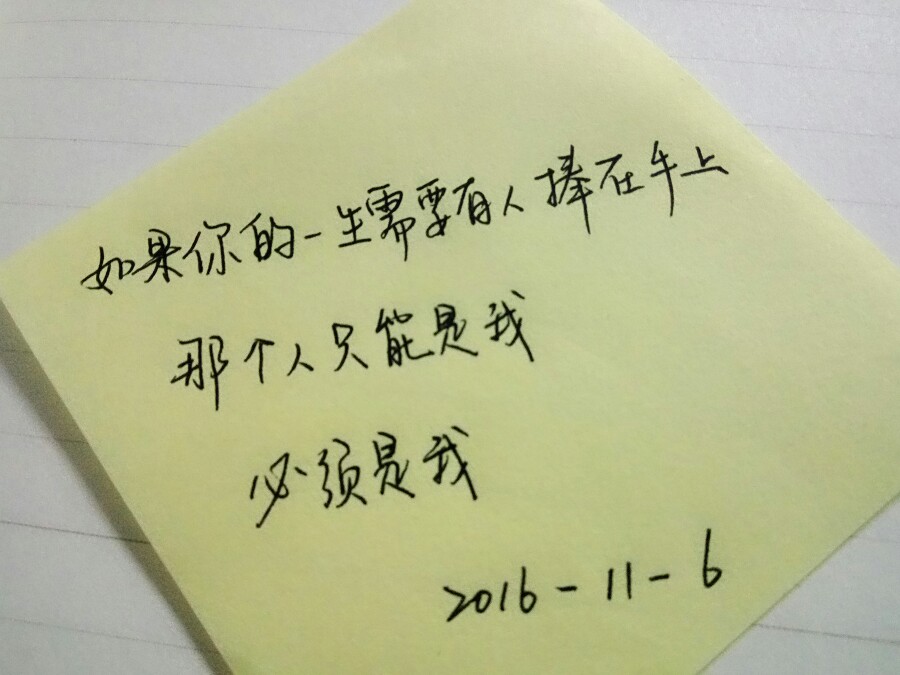 如果你的一生需要有人捧在手上
那个人只能是我
必须是我
2016-11-6